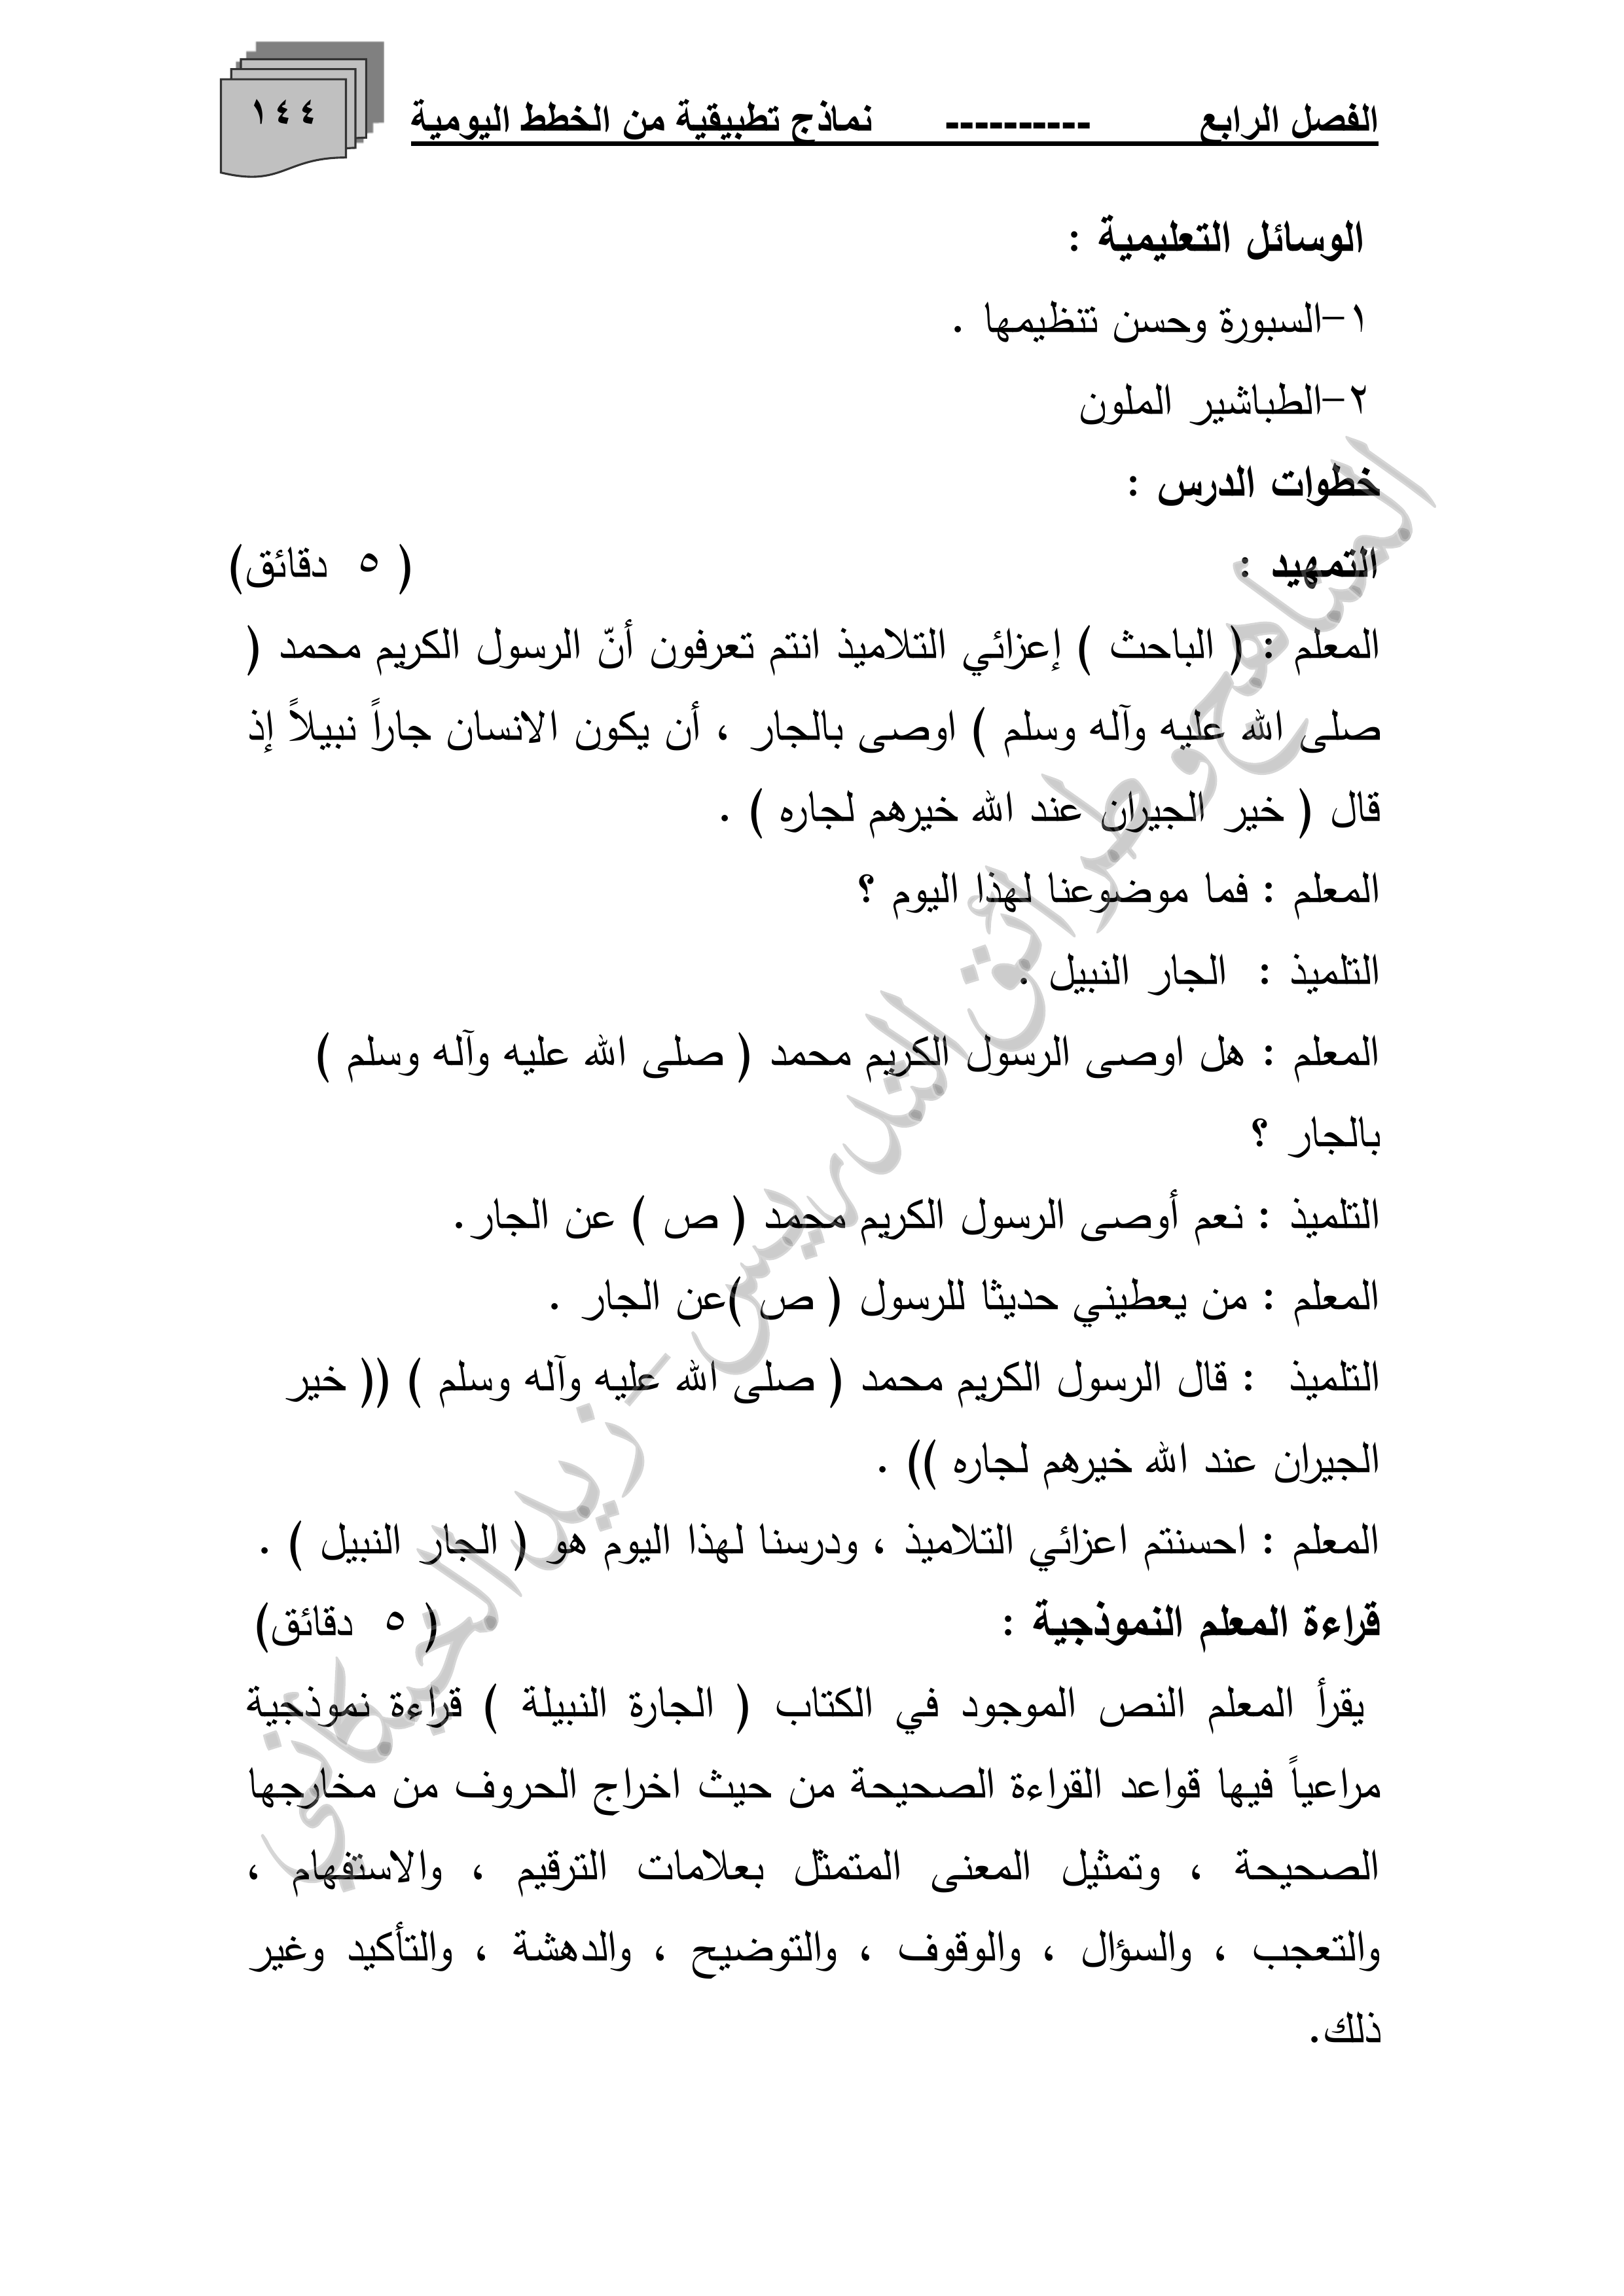 الفصل الرابع ---------- نماذج تطبيقية من الخطط اليومية ١٤٤
الوسائل التعليمية :
١-السبورة وحسن تنظيمها .
٢-الطباشير الملون
خطوات الدرس :
التمهيد : ( ٥ دقائق)
المعلم : ( الباحث ) إعزائي التلاميذ انتم تعرفون أنّ الرسول الكريم محمد (
صلى الله عليه وآله وسلم ) اوصى بالجار ، أن يكون الانسان جاراً نبيلاً إذ
قال ( خير الجيران عند الله خيرهم لجاره ) .
المعلم : فما موضوعنا لهذا اليوم ؟
التلميذ : الجار النبيل .
المعلم : هل اوصى الرسول الكريم محمد ( صلى الله عليه وآله وسلم )
بالجار ؟
التلميذ : نعم أوصى الرسول الكريم محمد ( ص ) عن الجار.
المعلم : من يعطيني حديثا للرسول ( ص )عن الجار .
التلميذ : قال الرسول الكريم محمد ( صلى الله عليه وآله وسلم ) (( خير
الجيران عند الله خيرهم لجاره )) .
المعلم : احسنتم اعزائي التلاميذ ، ودرسنا لهذا اليوم هو ( الجار النبيل ) .
قراءة المعلم النموذجية : ( ٥ دقائق)
يقرأ المعلم النص الموجود في الكتاب ( الجارة النبيلة ) قراءة نموذجية
مراعياً فيها قواعد القراءة الصحيحة من حيث اخراج الحروف من مخارجها
الصحيحة ، وتمثيل المعنى المتمثل بعلامات الترقيم ، والاستفهام ،
والتعجب ، والسؤال ، والوقوف ، والتوضيح ، والدهشة ، والتأكيد وغير
ذلك.
المناهج وطرائق التدريس - زيد الخيكاني